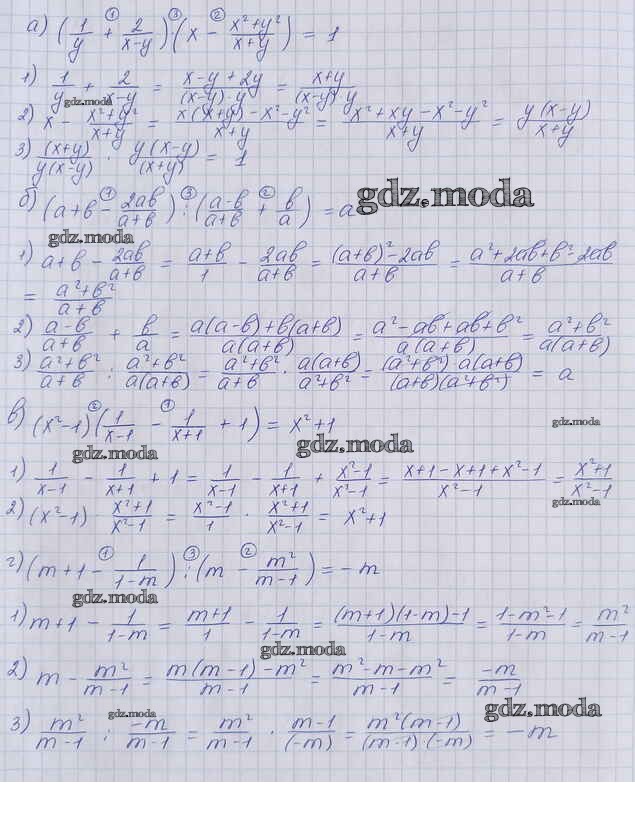 а) (1/y + 2/(x-y)) · (x - (x²+y²)/(x+y)) = 1
① ③ ②
1) 1/y + 2/(x-y) = (x-y+2y)/((x-y)·y) = (x+y)/((x-y)·y)
gdz.moda
2) x - (x²+y²)/(x+y) = (x(x+y)-x²-y²)/(x+y) = (x²+xy-x²-y²)/(x+y) = y(x-y)/(x+y)
3) (x+y)/(y(x-y)) · y(x-y)/(x+y) = 1
gdz.moda
б) (a+b - 2ab/(a+b)) : ((a-b)/(a+b) + b/a) = a
① ③ ②
gdz.moda
1) a+b - 2ab/(a+b) = (a+b)/1 - 2ab/(a+b) = ((a+b)²-2ab)/(a+b) = (a²+2ab+b²-2ab)/(a+b)
= (a²+b²)/(a+b)
2) (a-b)/(a+b) + b/a = (a(a-b)+b(a+b))/(a(a+b)) = (a²-ab+ab+b²)/(a(a+b)) = (a²+b²)/(a(a+b))
3) (a²+b²)/(a+b) : (a²+b²)/(a(a+b)) = (a²+b²)/(a+b) · a(a+b)/(a²+b²) = (a²+b²)·a(a+b)/((a+b)(a²+b²)) = a
в) (x²-1)(1/(x-1) - 1/(x+1) + 1) = x²+1
② ①
gdz.moda
gdz.moda
gdz.moda
1) 1/(x-1) - 1/(x+1) + 1 = 1/(x-1) - 1/(x+1) + (x²-1)/(x²-1) = (x+1-x+1+x²-1)/(x²-1) = (x²+1)/(x²-1)
gdz.moda
2) (x²-1) · (x²+1)/(x²-1) = (x²-1)/1 · (x²+1)/(x²-1) = x²+1
г) (m+1 - 1/(1-m)) : (m - m²/(m-1)) = -m
① ③ ②
gdz.moda
1) m+1 - 1/(1-m) = (m+1)/1 - 1/(1-m) = ((m+1)(1-m)-1)/(1-m) = (1-m²-1)/(1-m) = m²/(m-1)
gdz.moda
2) m - m²/(m-1) = (m(m-1)-m²)/(m-1) = (m²-m-m²)/(m-1) = -m/(m-1)
gdz.moda
gdz.moda
3) m²/(m-1) : -m/(m-1) = m²/(m-1) · (m-1)/(-m) = m²(m-1)/((m-1)·(-m)) = -m